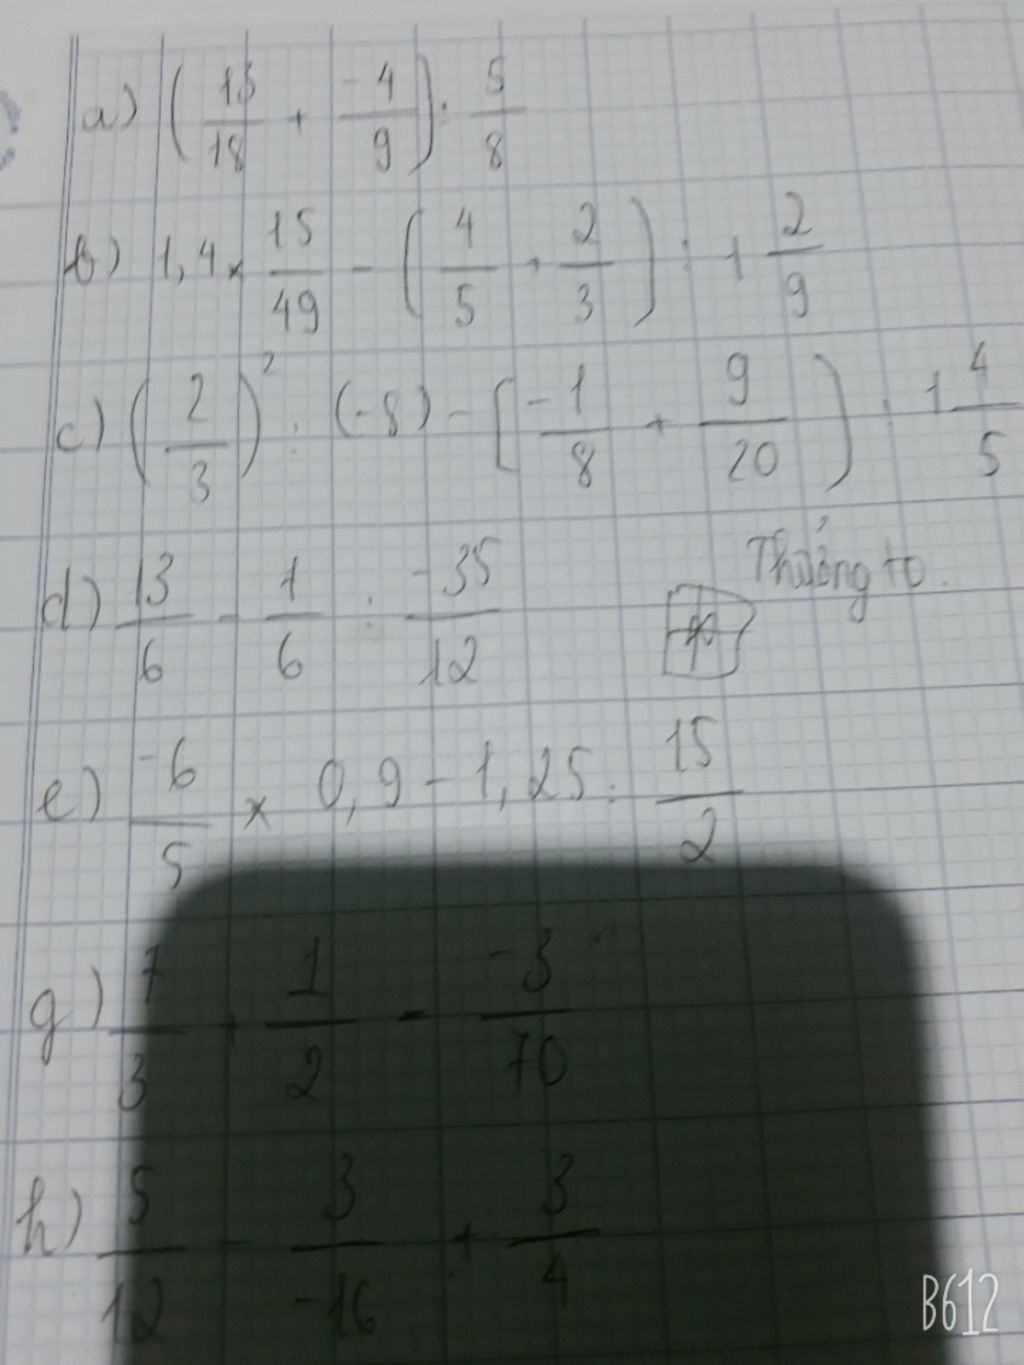 a) (13/18 + -4/9) : 5/8
b) 1,4 × 15/49 - (4/5 + 2/3) : 1 2/9
c) (2/3)² . (-8) - [-1/8 + 9/20) : 1 4/5
d) 13/6 - 1/6 : -35/12
Thưởng to.
e) -6/5 × 0,9 - 1,25 : 15/2
g) 7/3 + 1/2 - -3/70
h) 5/12 - 3/-16 + 3/4
B612